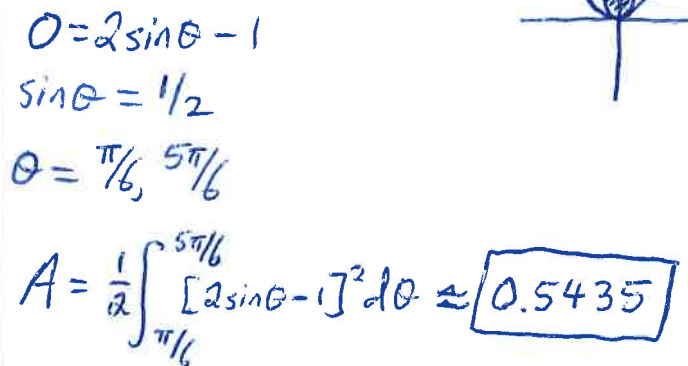 0 = 2sinθ - 1
sinθ = 1/2
θ = π/6, 5π/6
A = 1/2 ∫_{π/6}^{5π/6} [2sinθ - 1]² dθ ≈ 0.5435